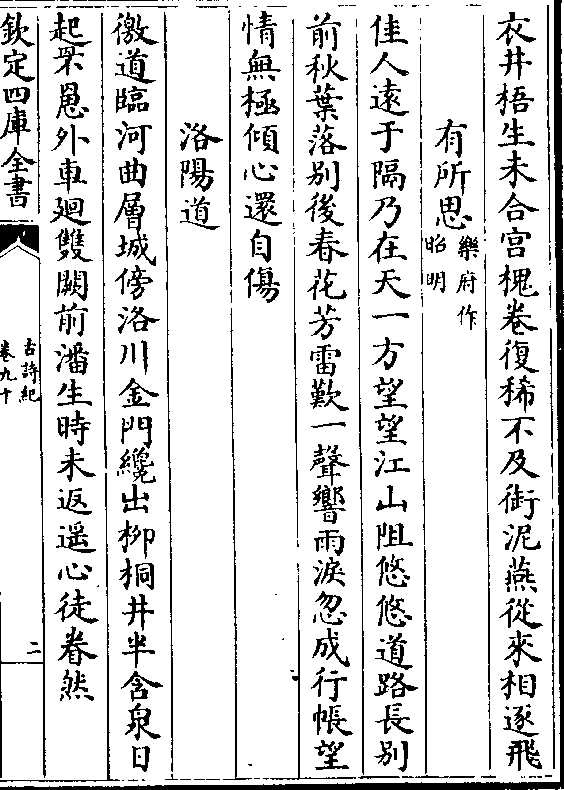 衣井梧生未合宫槐卷復稀不及銜泥燕從來相逐飛
有所思樂府作昭明
佳人遠于隔乃在天一方望望江山阻悠悠道路長别
前秋葉落别後春花芳雷歎一聲響雨淚忽成行悵望
情無極傾心還自傷
洛陽道
徼道臨河曲層城傍洛川金門纔出柳桐井半含泉日
起罘罳外車廻雙闕前潘生時未返遥心徒眷然
欽定四庫全書
古詩紀
卷九十
二